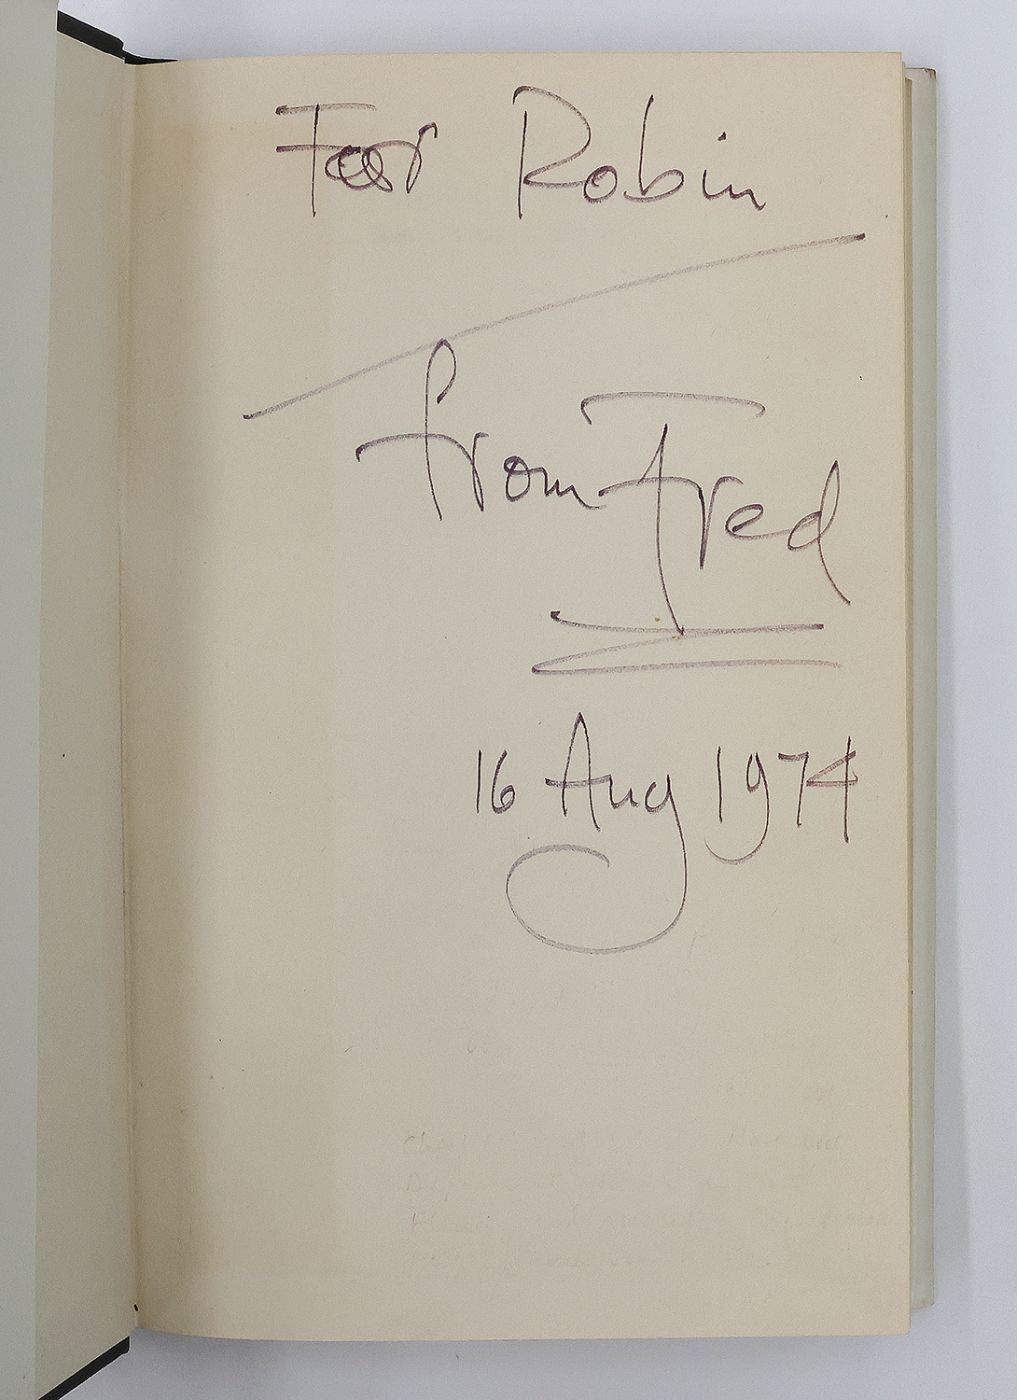 For Robin
from Fred
16 Aug 1974